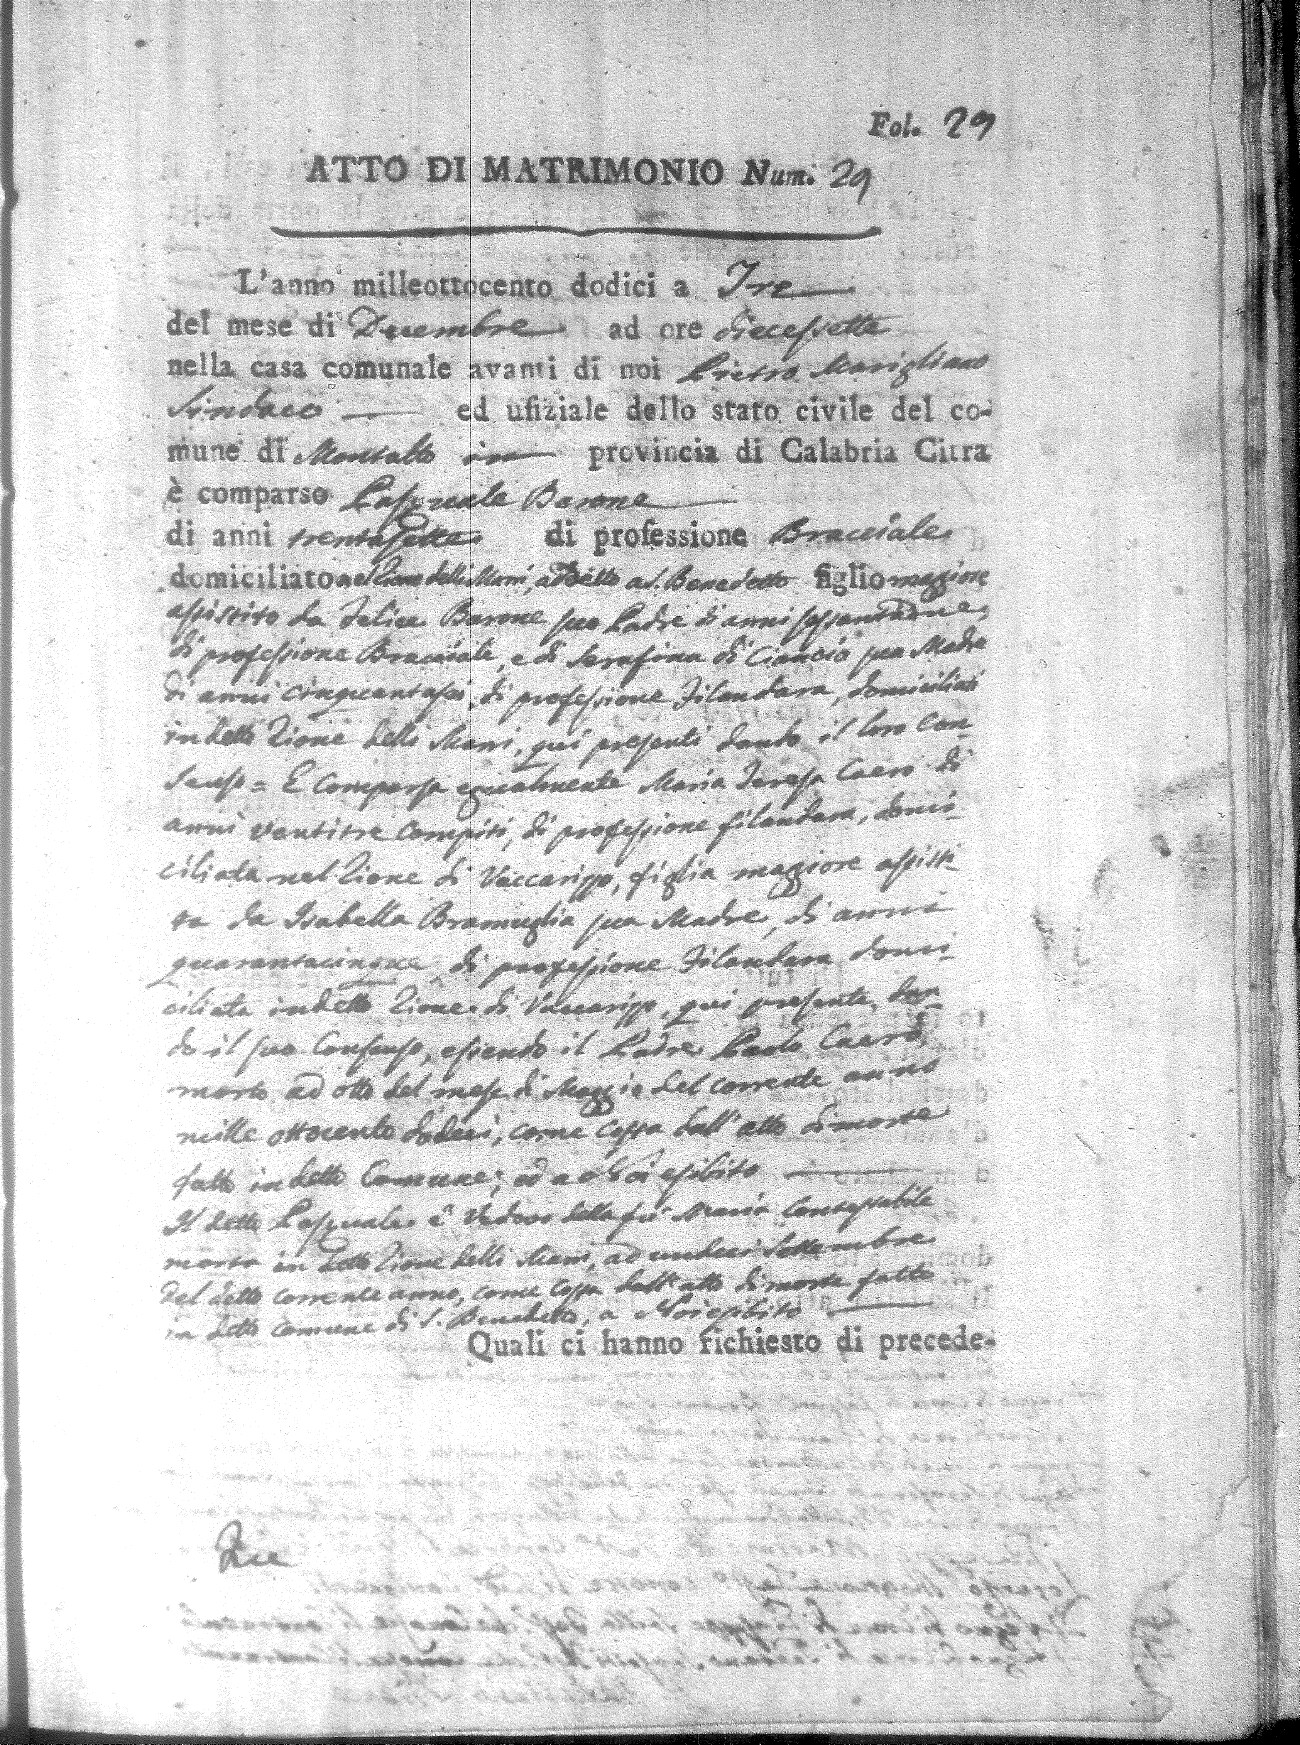 Fol. 29
ATTO DI MATRIMONIO Num. 29
L'anno milleottocento dodici a Tre
del mese di Decembre ad ore diecessette
nella casa comunale avanti di noi Pietro Marigliano
Sindaco ed ufiziale dello stato civile del co-
mune di Montalto in provincia di Calabria Citra
è comparso Pasquale Barone
di anni trentasette di professione Bracciale
domiciliato nel Zione delli Mani, addetto a S. Benedetto figlio maggiore
assistito da Felice Barone suo Padre di anni sessantadue,
di professione Bracciale, e di Serafina di Ciancio sua Madre
di anni cinquantasei, di professione Filandara, domiciliati
in detto Zione delli Mani, qui presenti dando il loro con-
senso = E comparsa egualmente Maria Teresa Caero di
anni ventitre compiti, di professione filandara, domi-
ciliata nel Zione di Vaccarizzo, figlia maggiore assisti-
ta da Isabella Bramuglia sua Madre, di anni
quarantacinque, di professione Filandara domi-
ciliata in detto Zione di Vaccarizzo, qui presente, dan-
do il suo Consenso, essendo il Padre Paolo Caero,
morto ad otto del mese di Maggio del corrente anno
mille ottocento dodeci, come costa dall'atto di morte
fatto in detto Comune, ed a Noi esibito
Il detto Pasquale è Vedovo della fu Maria Contestabile
morta in detto Zione delli Mani, ad undeci Settembre
del detto corrente anno, come costa dall'atto di morte fatto
in detto comune di S. Benedetto, a Noi esibito
Quali ci hanno richiesto di precede-